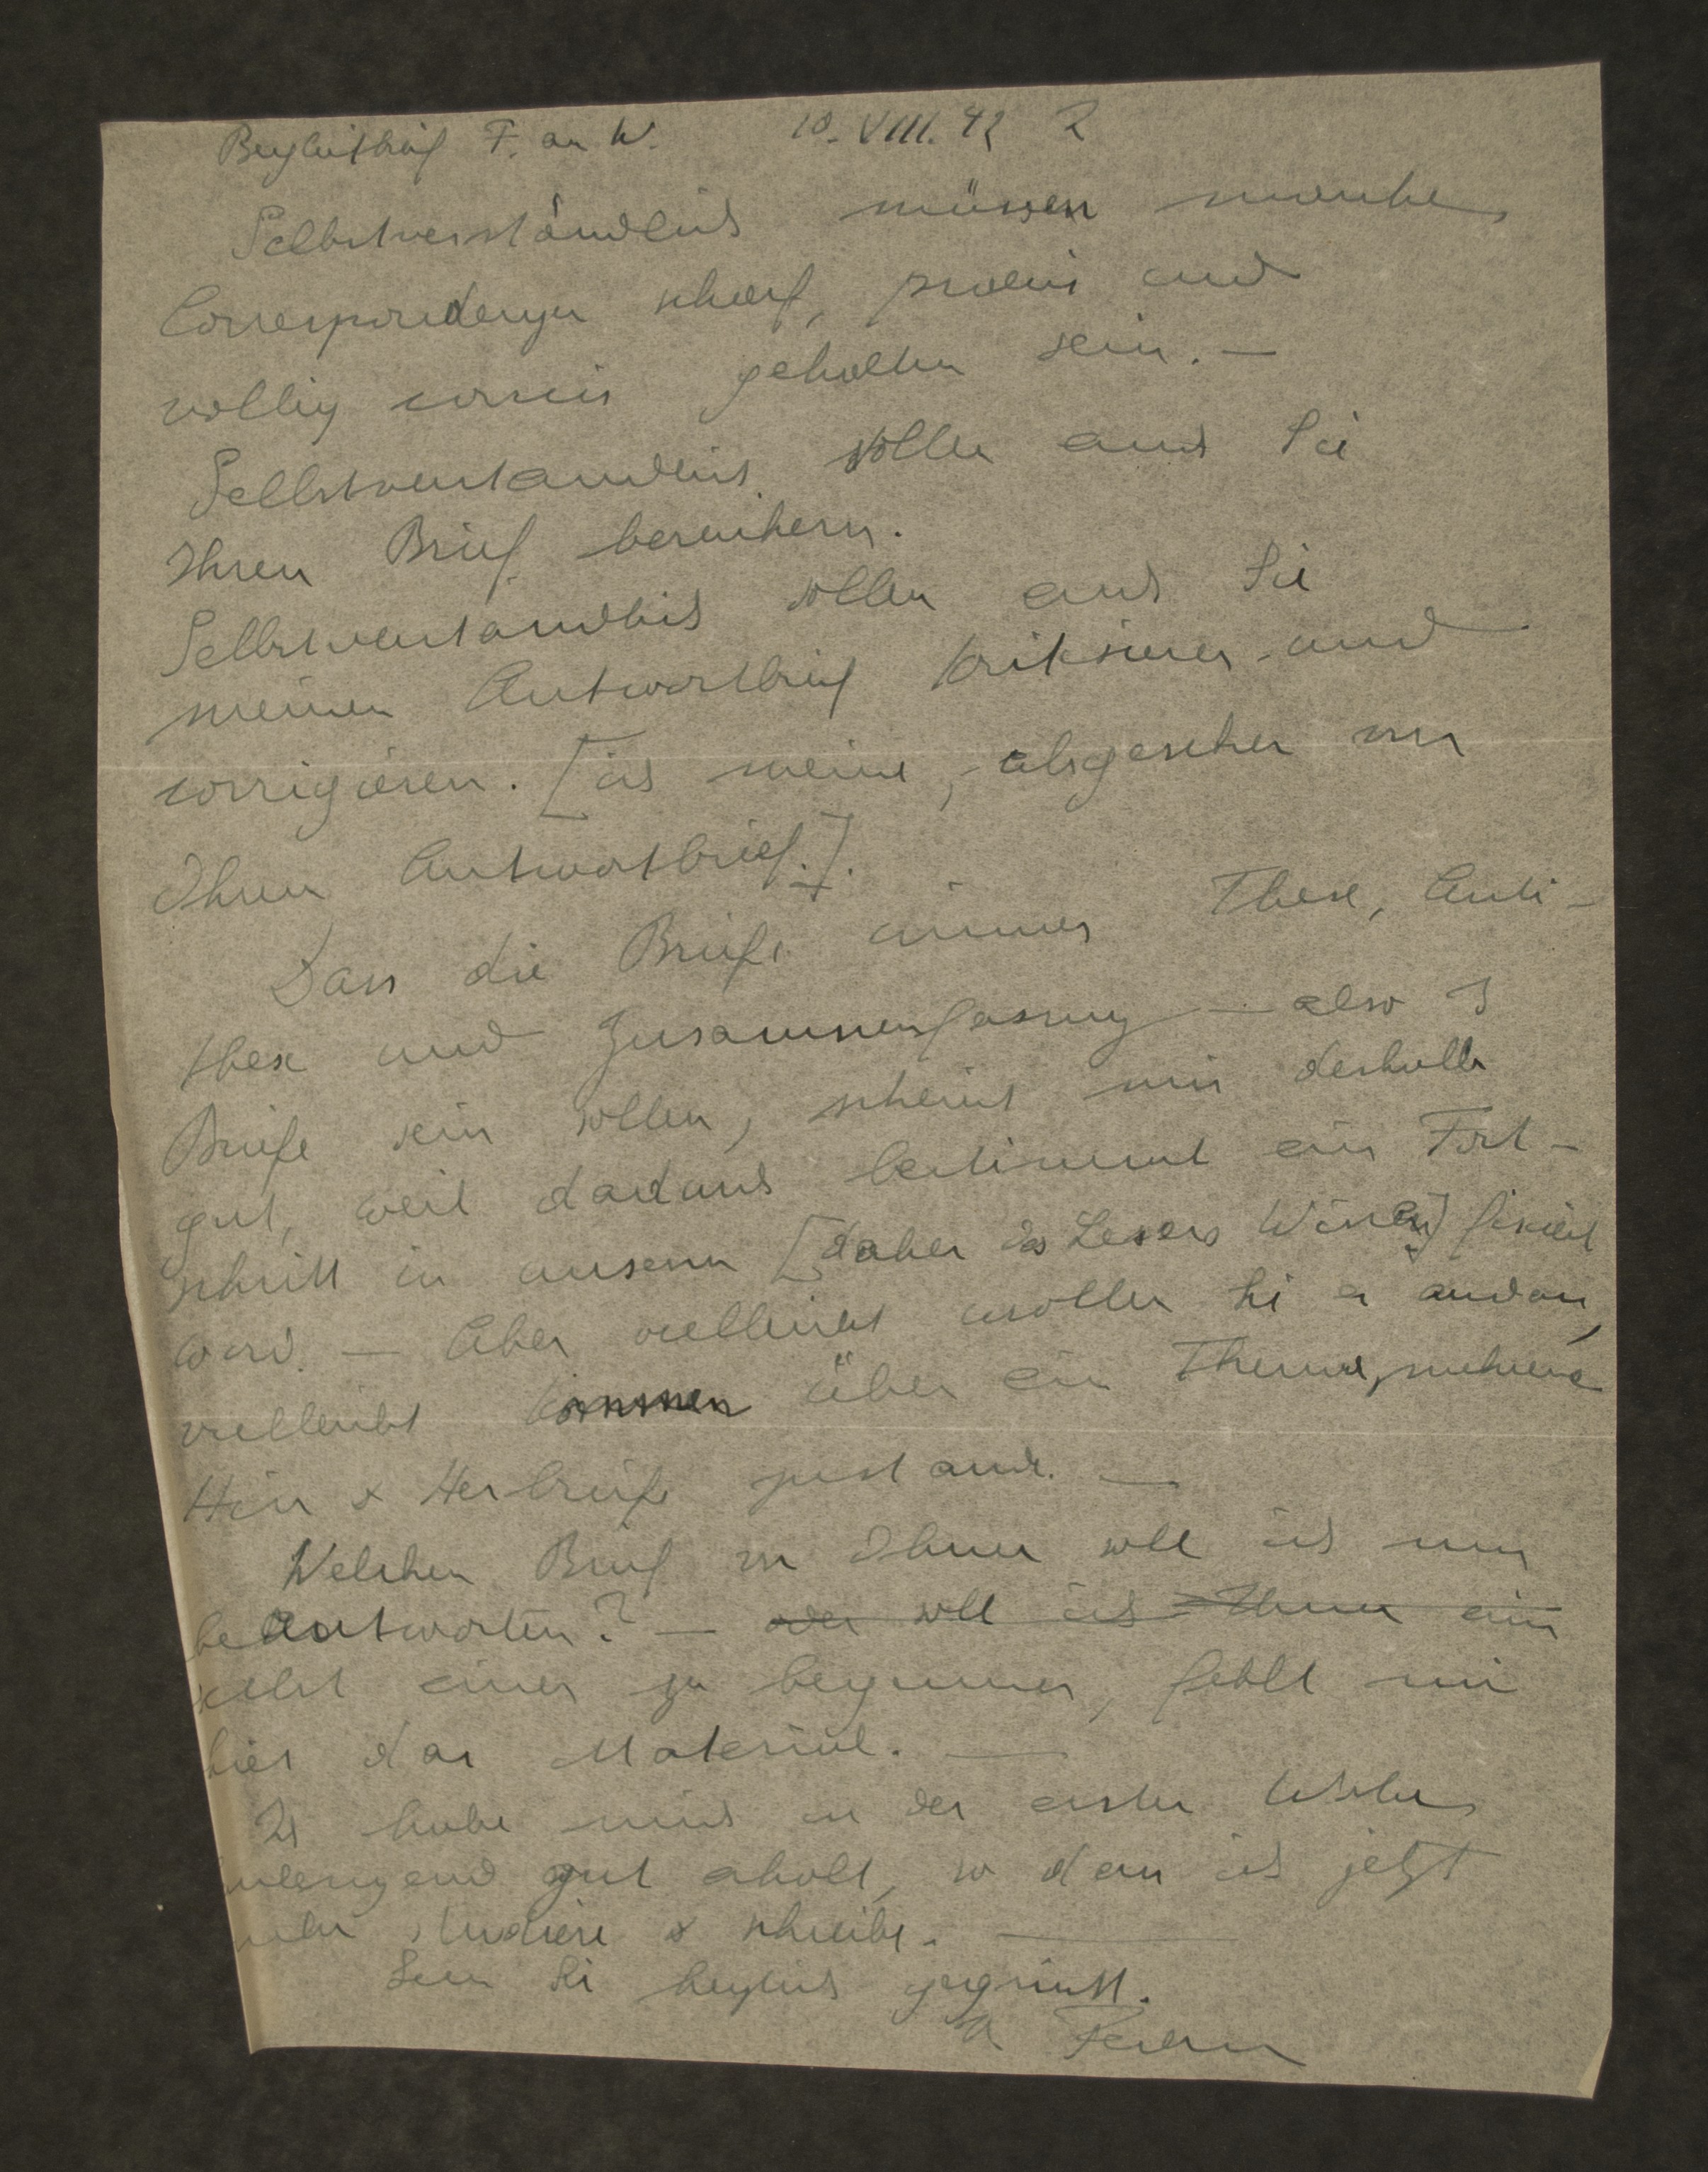 Begleitbrief F. an W. 18. VIII. 42 2
Selbstverständlich müssen manche
Correspondenzen scharf, präcis und
völlig concis gehalten sein. —
Selbstverständlich sollen auch Sie
Ihren Brief bereichern.
Selbstverständlich sollen auch Sie
meinen Antwortbrief kritisieren und
corrigieren. [ich meine, abgesehen von
Ihrem Antwortbrief.].
Dass die Briefe immer These, Anti-
these und Zusammenfassung — also 3
Briefe sein sollen, scheint mir deshalb
gut, weil dadurch bestimmt ein Fort-
schritt in unserem [daher des Lesers Wissen] fixiert
wird. — Aber vielleicht wollen Sie es anders,
vielleicht kommen über ein Thema, mehrere
Hin & Herbriefe zustande. —
Welchen Brief von Ihnen soll ich nun
beantworten? — oder soll ich Ihnen ein
selbst einen zu beginnen, fehlt mir
hier das Material. —
Ich habe mich in der ersten Woche
gut erholt, so dass ich jetzt
studiere & schreibe. —
Seien Sie herzlich gegrüsst.
Federn